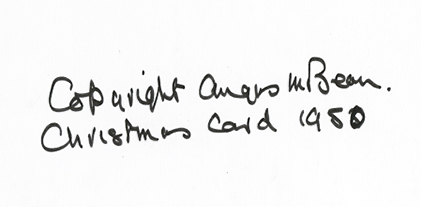 Copyright Angus McBean.
Christmas Card 1950